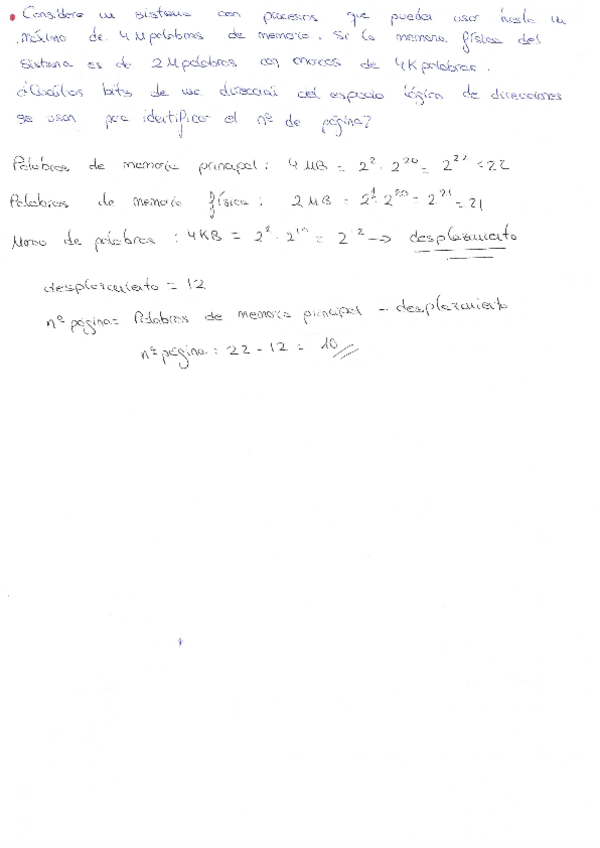 Considere un sistema con procesos que pueden usar hasta un
máximo de 4 Mpalabras de memoria. Si la memoria física del
sistema es de 2 Mpalabras con marcos de 4K palabras.
¿Cuántos bits de una dirección del espacio lógico de direcciones
se usan para identificar el nº de página?
Palabras de memoria principal: 4 MB = 2² · 2²⁰ = 2²² = 22
Palabras de memoria física: 2 MB = 2¹ · 2²⁰ = 2²¹ = 21
Marco de palabras: 4KB = 2² · 2¹⁰ = 2¹² → desplazamiento
desplazamiento = 12
nº página = Palabras de memoria principal - desplazamiento
nº página: 22 - 12 = 10